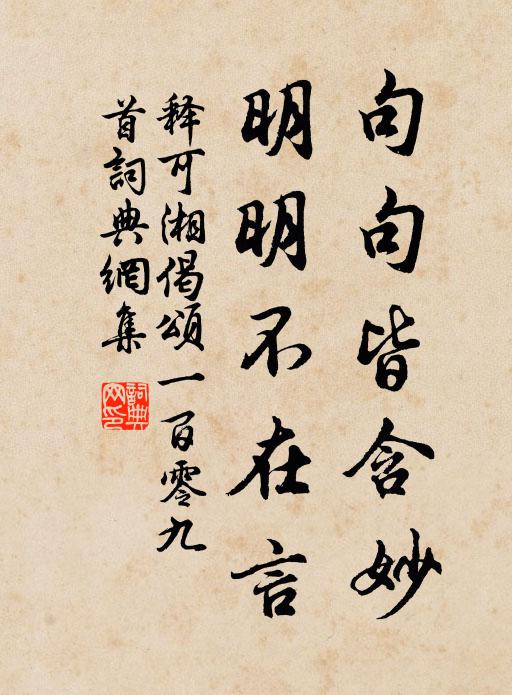 句句皆含妙
明明不在言
释可湘偈頌一百零九
首詞典網集
詞典
网印